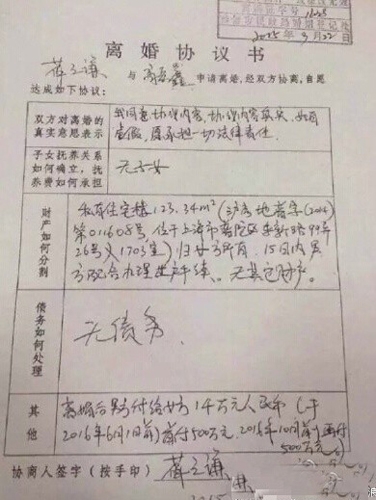 2015 9 22
离婚协议书
蒋立谦 与 高磊鑫 申请离婚,经双方协商,自愿
达成如下协议:
双方对离婚的
真实意思表示
我同意协议内容,协议内容真实,如有
虚假,愿承担一切法律责任.
子女抚养关系
如何确立,抚
养费如何承担
无子女
财产如何分割
私有住宅楼123.34m²(沪房地普字(2014)
第011608号,位于上海市普陀区 99弄
26号 1703室)归女方所有,15日内男
方配合办理 手续. 无其它财产.
债务如何处理
无债务
其他
离婚后男方付给女方1千万元人民币(于
2016年6月1日前)首付500万元.2016年10月前再付
500万元
协商人签字(按手印) 蒋立谦
2015